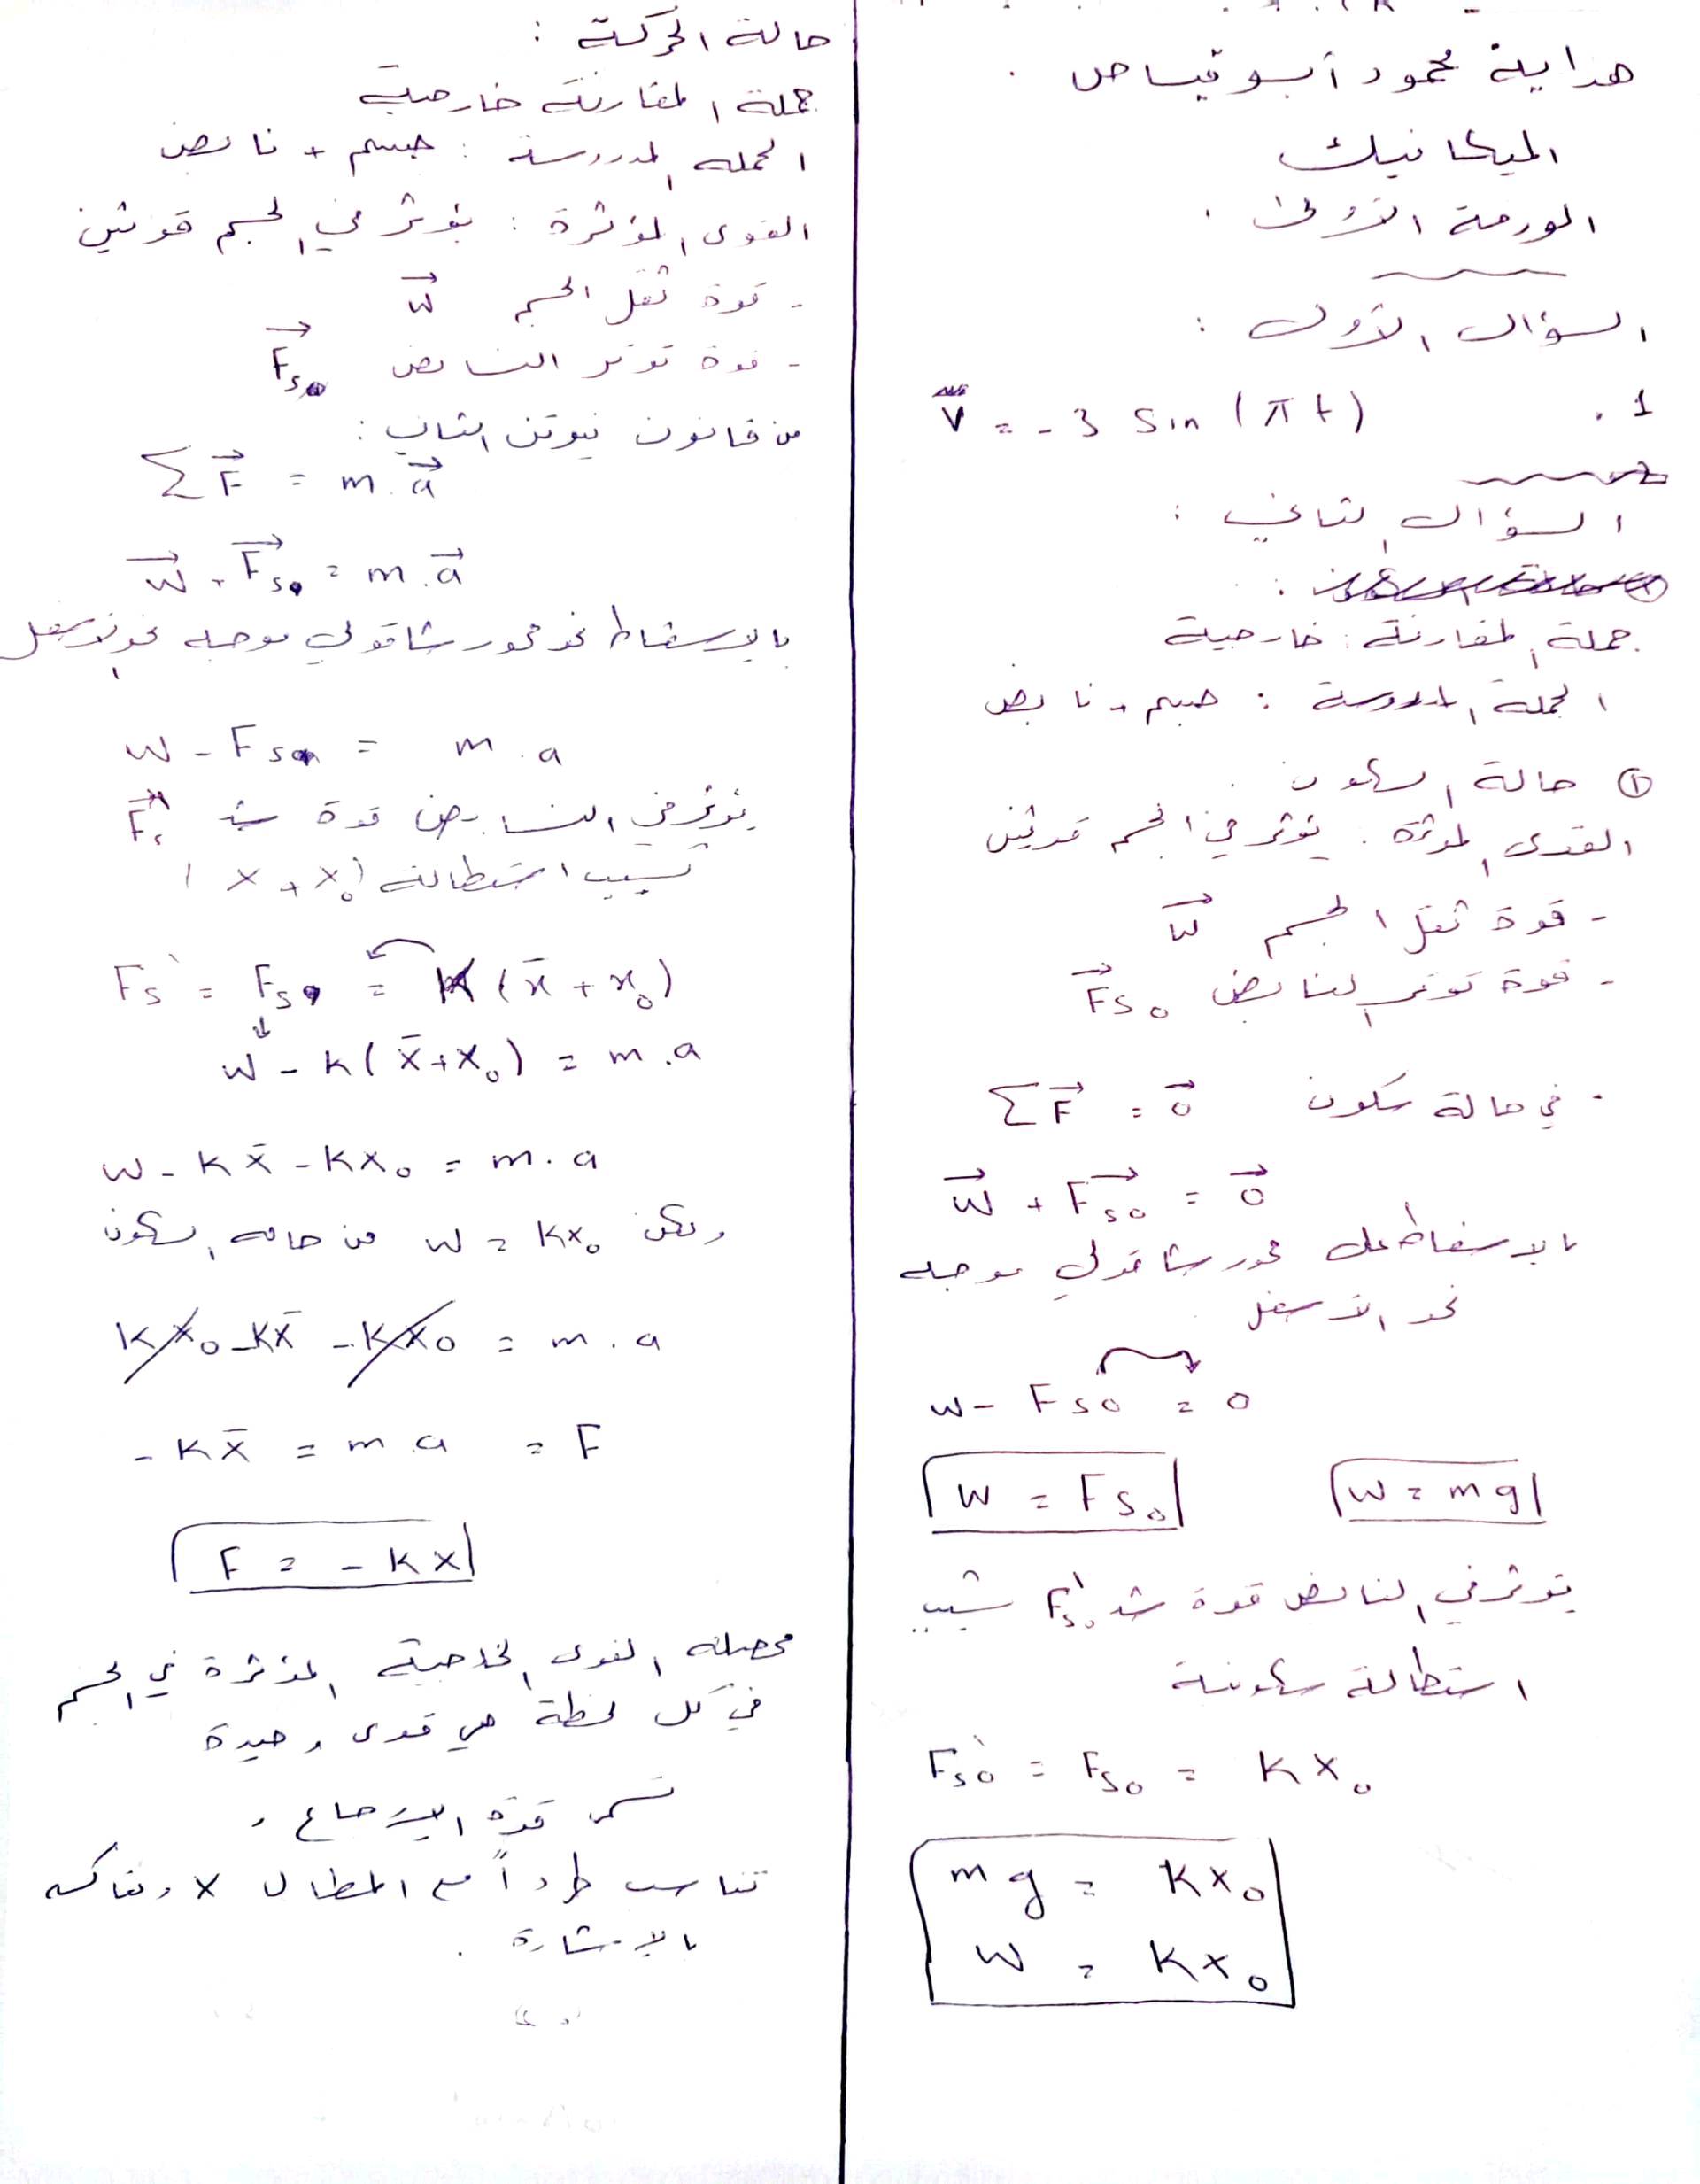 هداية محمود أبو قياص .
الميكانيك
الورقة الأولى .
السؤال الأول :
1 . V̅ = - 3 Sin (π t)
السؤال الثاني :
جملة المقارنة : خارجية
الجملة المدروسة : جسم + نابض
① حالة السكون .
القوى المؤثرة : يؤثر في الجسم قوتين
- قوة ثقل الجسم W⃗
- قوة توتر النابض F⃗s₀
. في حالة سكون ΣF⃗ = 0⃗
W⃗ + F⃗s₀ = 0⃗
بالإسقاط على محور شاقولي موجه
نحو الأسفل
w - Fs₀ = 0
W = Fs₀ w = mg
يؤثر في النابض قوة شد F's₀ تسبب
استطالة سكونية
Fs₀' = Fs₀ = K x₀
mg = Kx₀
W = Kx₀
حالة الحركة :
جملة المقارنة خارجية
الجملة المدروسة : جسم + نابض
القوى المؤثرة : يؤثر في الجسم قوتين
- قوة ثقل الجسم W⃗
- قوة توتر النابض F⃗s
من قانون نيوتن الثاني :
ΣF⃗ = m.a⃗
W⃗ + F⃗s = m.a⃗
بالإسقاط نحو محور شاقولي موجه نحو الأسفل
W - Fs = m.a
يؤثر في النابض قوة شد
تسبب استطالته (x + x₀)
Fs' = Fs = K (x̄ + x₀)
W - k(x̄ + x₀) = m.a
W - Kx̄ - Kx₀ = m.a
ولكن W = Kx₀ من حالة السكون
Kx₀ - Kx̄ - Kx₀ = m.a
- Kx̄ = m.a = F
F = - Kx
محصلة القوى الخارجية المؤثرة في الجسم
في كل لحظة هي قوى وحيدة
تسمى قوة الإرجاع ,
تتناسب طرداً مع المطال x وتعاكسه
بالإشارة .